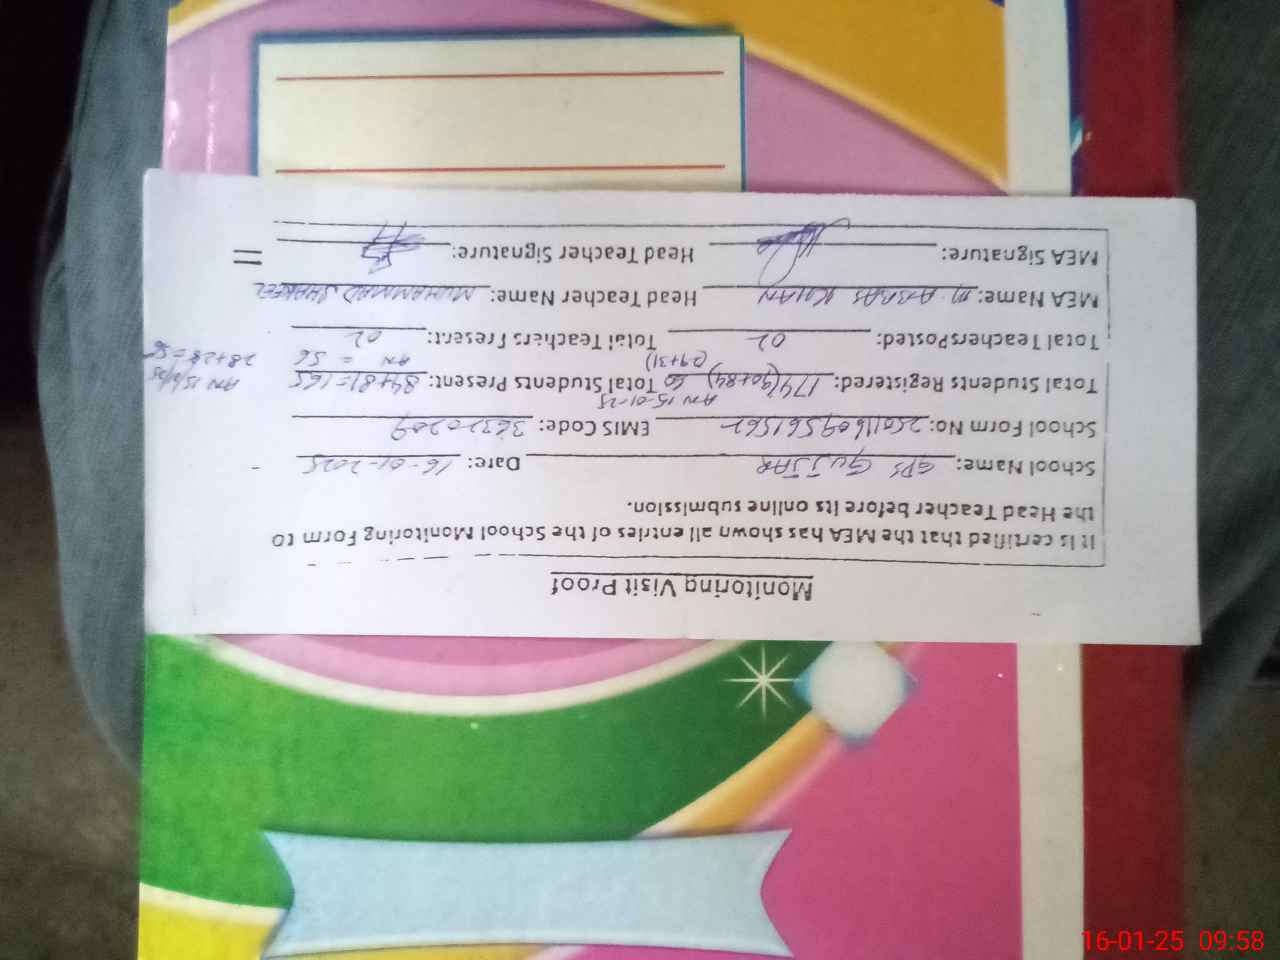 Monitoring Visit Proof
It is certified that the MEA has shown all entries of the School Monitoring Form to
the Head Teacher before its online submission.
School Name: GPS GUJJAR Date: 16-01-2025
School Form No: 25011609561562 EMIS Code: 36320209
AN 15-01-25
Total Students Registered: 174 (90+84) 60 Total Students Present: 84+81=165 AN 15
(29+31) AN = 56 28+28=56
Total TeachersPosted: 02 Total Teachers Present: 02
MEA Name: M. ABBAS KHAN Head Teacher Name: MUHAMMAD SHAKEEL
MEA Signature: Head Teacher Signature:
16-01-25 09:58